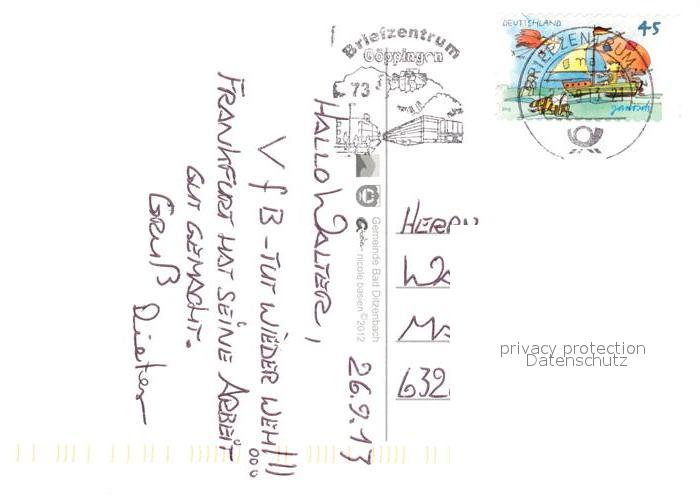 DEUTSCHLAND 45
Briefzentrum
Göppingen
73
BRIEFZENTRUM
janosch
26.9.13
HALLO WALTER,
VfB - TUT WIEDER WEH!!!
FRANKFURT HAT SEINE ARBEIT
GUT GEMACHT.
GRUß
Dieter
Gemeinde Bad Ditzenbach
nicole basien © 2012
HERRN
632
privacy protection
Datenschutz